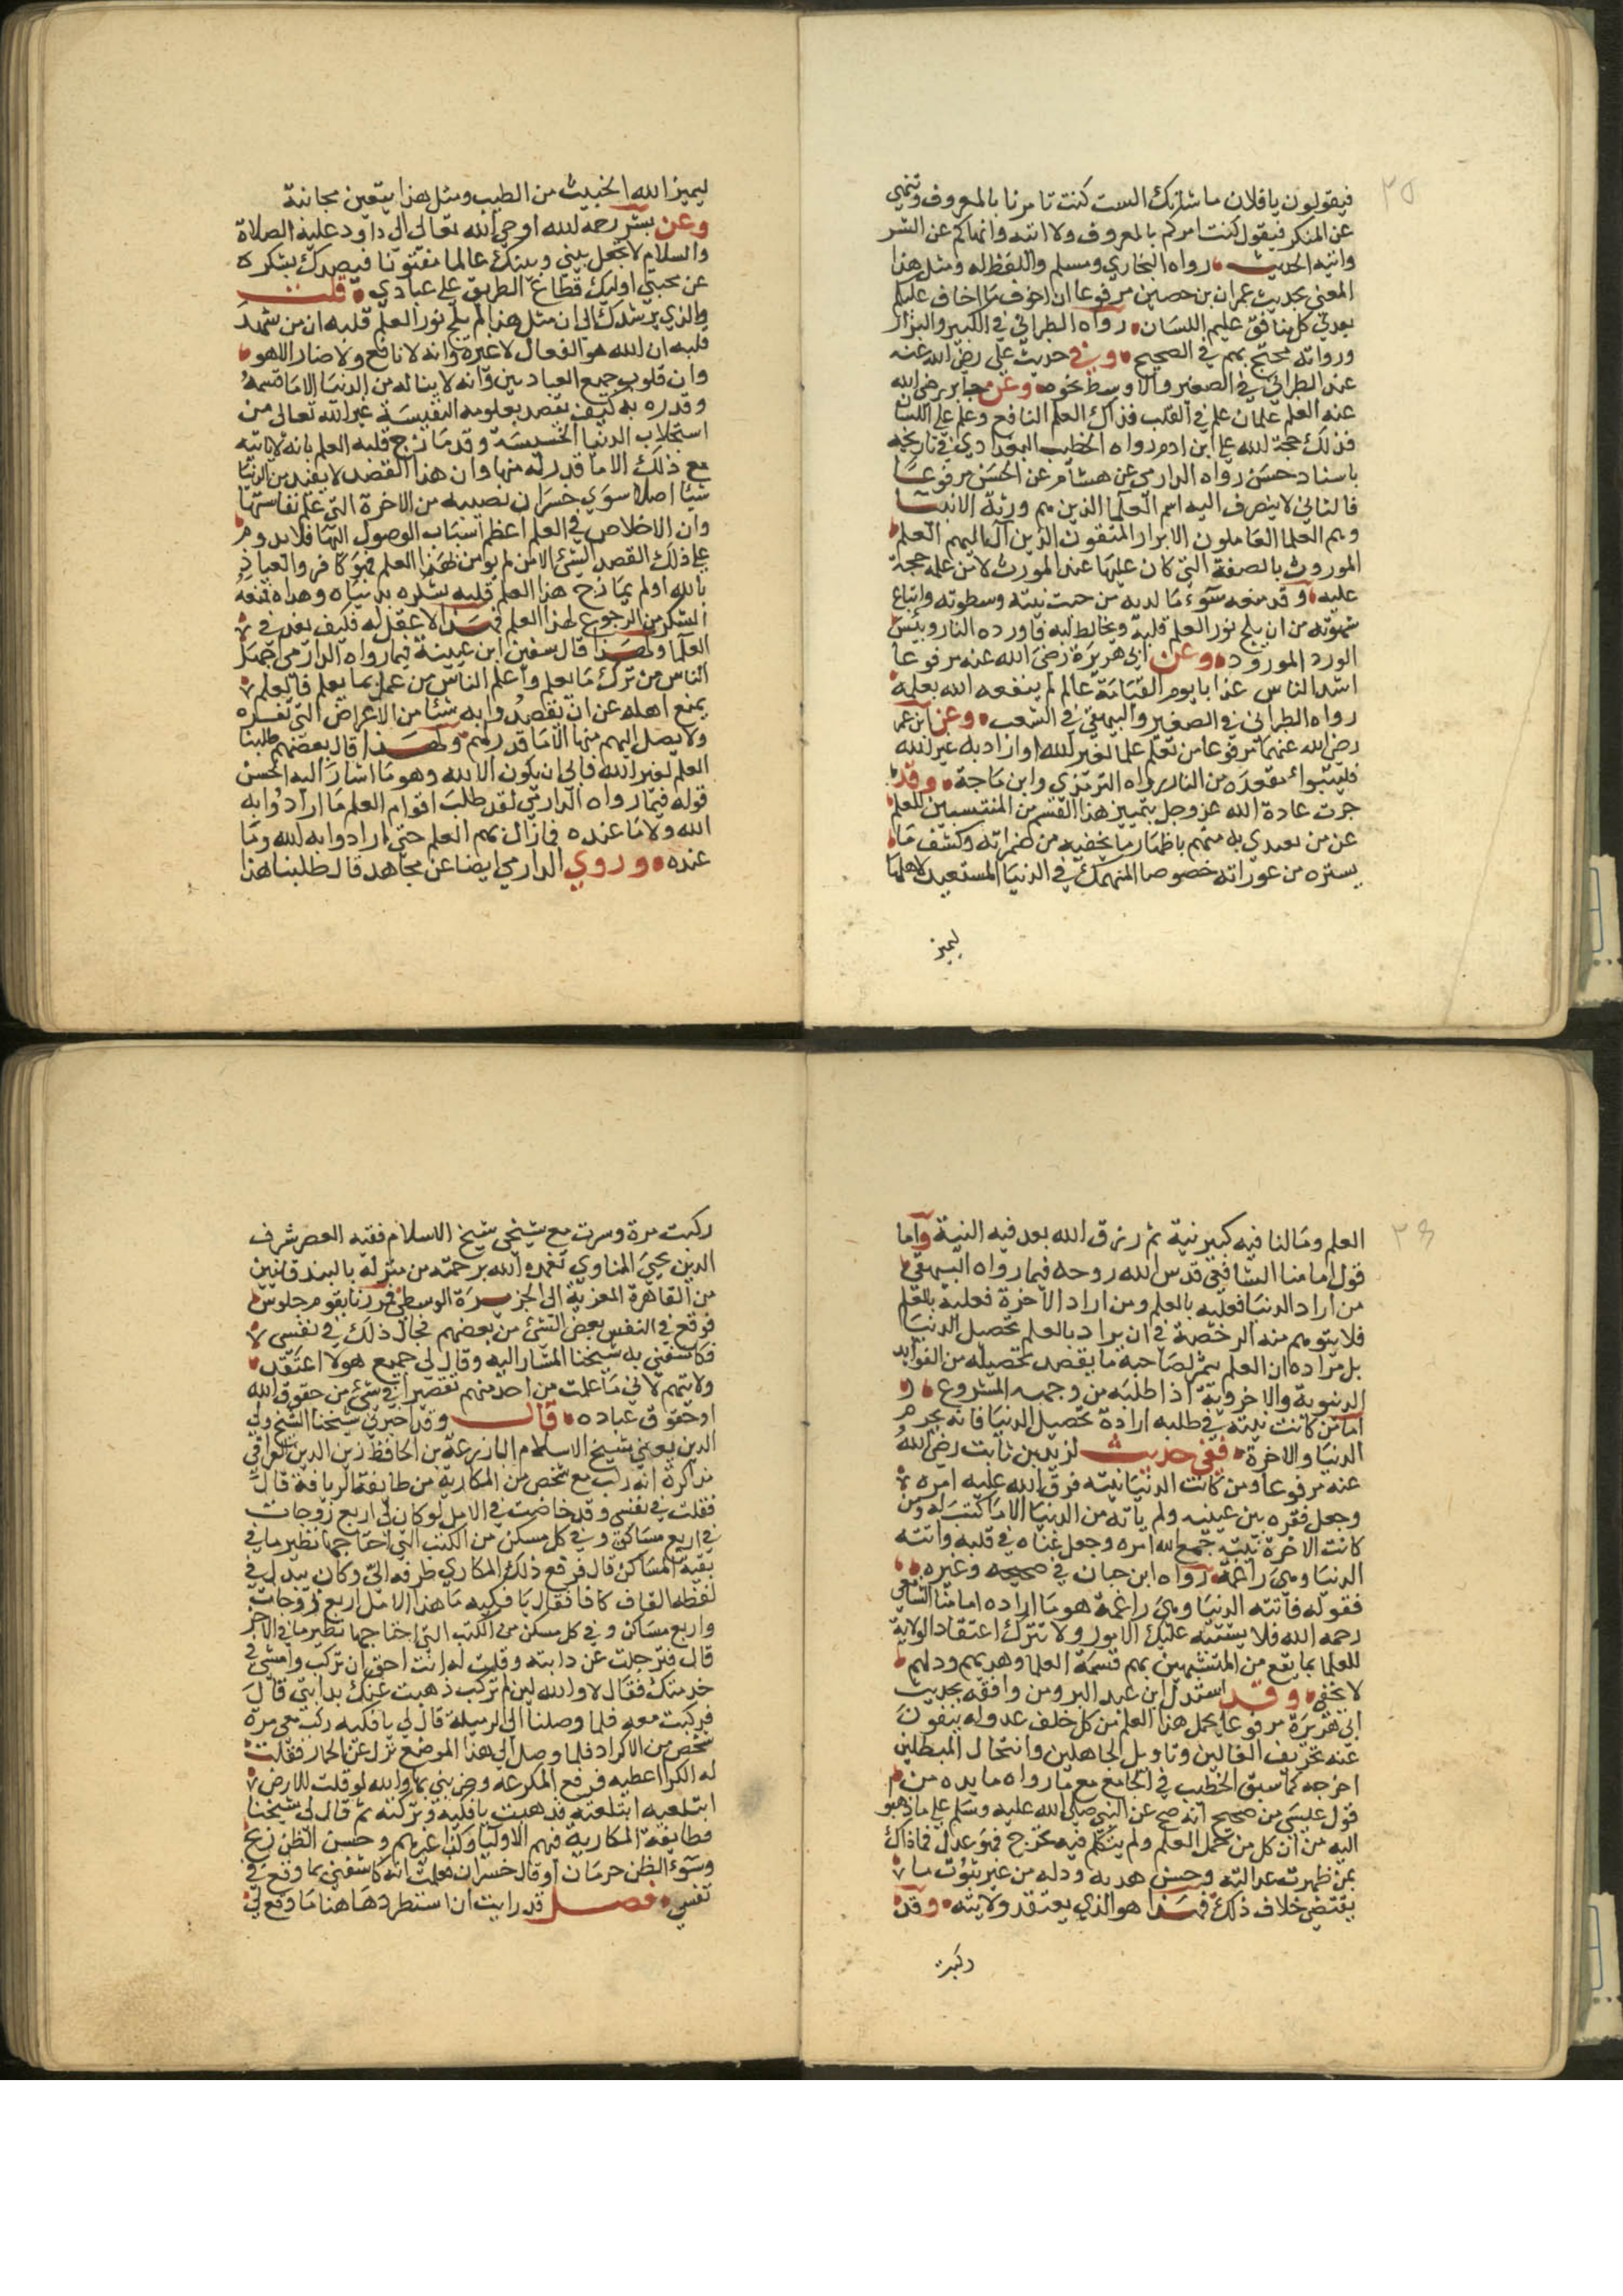 ٢٥
فيقولون يا فلان ما شانك الست كنت تامرنا بالمعروف وتنهى
عن المنكر فيقول كنت امركم بالمعروف ولا اتيه وانهاكم عن الشر
واتيه الحديث رواه البخاري ومسلم واللفظ له ومثل هذا
المعنى بحديث عمران بن حصين مرفوعا ان اخوف ما اخاف عليكم
بعدي كل منافق عليم اللسان رواه الطبراني في الكبير والبزار
ورواته محتج بهم في الصحيح وفي حديث علي رضي الله عنه
عند الطبراني في الصغير والاوسط نحوه وعن جابر رضي الله
عنه العلم علمان علم في القلب فذاك العلم النافع وعلم على اللسان
فذلك حجة لله على ابن ادم رواه الخطيب البغدادي في تاريخه
باسناد حسن رواه الدارمي عن هشام عن الحسن مرفوعا
فالثاني لا ينصرف اليه اسم العلما الذين هم ورثة الانبيا
وهم العلما العاملون الابرار المتقون الذين آل اليهم العلم
الموروث بالصفة التي كان عليها عند المورث لا من علمه حجة
عليه وقد منعه سوء ما لديه من خبث نيته وسطوته واتباع
شهوته من ان يلج نور العلم قلبه ويخالط لبه فاورده النار وبئس
الورد المورود وعن ابي هريرة رضي الله عنه مرفوعا
اشد الناس عذابا يوم القيامة عالم لم ينفعه الله بعلمه
رواه الطبراني في الصغير والبيهقي في الشعب وعن ابن عمر
رضي الله عنهما مرفوعا من تعلم علما لغير الله او اراد به غير الله
فليتبوا مقعده من النار رواه الترمذي وابن ماجة وقد
جرت عادة الله عز وجل بتمييز هذا القسم من المنتسبين للعلم
عن من يهدي به منهم باظهار ما يخفيه من ضمراته وكشف ما
يستره من عوراته خصوصا المنهمك في الدنيا المستعبد لاهلها
ليميز
ليميز الله الخبيث من الطيب ومثل هذا يتعين مجانبة
وعن بشر رحمه الله اوحى الله تعالى الى داود عليه الصلاة
والسلام لا تجعل بيني وبينك عالما مفتونا فيصدك بشكره
عن محبتي اوليك قطاع الطريق على عبادي قلت
والذي يرشدك الى ان مثل هذا لم يلج نور العلم قلبه ان من شهد
قلبه ان الله هو الفعال لا غيره وانه لا نافع ولا ضار الا هو
وان قلوب جميع العباد بين وانه لا يناله من الدنيا الا ما قسمه
وقدره به كيف يقصد بعلومه النفيسة غير الله تعالى من
استجلاب الدنيا الخسيسة وقد مازج قلبه العلم بانه لا ياتيه
مع ذلك الا ما قدر له منها وان هذا القصد لا يفيد من الدنيا
شيئا اصلا سوى خسران نصيبه من الاخرة التي علم نفاستها
وان الاخلاص في العلم اعظم اسباب الوصول اليها فلا يدوم
على ذلك القصد السئ الا من لم يومن بهذا العلم فهو كافر والعياذ
بالله او لم يمازح هذا العلم قلبه بشكره بدنياه وهواه فمنعه
السكر من الرجوع لهذا العلم فهذا لا عقل له فكيف يعد في
العلما ولهذا قال سفين ابن عيينة فيما رواه الدارمي اجهل
الناس من ترك ما يعلم واعلم الناس من عمل بما يعلم فالعلم
يمنع اهله عن ان يقصدوا به شئا من الاعراض التي تفسده
ولا يصل اليهم منها الا ما قدر لهم ولهذا قال بعضهم طلبنا
العلم لغير الله فابى ان يكون الا لله وهو ما اشار اليه الحسن
قوله فيما رواه الدارمي لقد طلب اقوام العلم ما ارادوا به
الله ولا ما عنده فما زال بهم العلم حتى ارادوا به الله وما
عنده وروي الدارمي ايضا عن مجاهد قال طلبنا هذا
٢٦
العلم وما لنا فيه كبير نية ثم رزق الله بعد فيه النية واما
قول امامنا الشافعي قدس الله روحه فيما رواه البيهقي
من اراد الدنيا فعليه بالعلم ومن اراد الآخرة فعليه بالعلم
فلا يتوهم منه الرخصة في ان يراد بالعلم تحصيل الدنيا
بل مراده ان العلم يثمر لصاحبه ما يقصد تحصيله من الفوايد
الدنيوية والاخروية اذا طلبه من وجهه المشروع
اما من كانت نيته في طلبه ارادة تحصيل الدنيا فانه يحرم
الدنيا والاخرة ففي حديث لزيد بن ثابت رضي الله
عنه مرفوعا ومن كانت الدنيا نيته فرق الله عليه امره
وجعل فقره بين عينيه ولم ياته من الدنيا الا ما كتب له ومن
كانت الاخرة نيته جمع الله امره وجعل غناه في قلبه واتته
الدنيا وهي راغمة رواه ابن حبان في صحيحه وغيره
فقوله فاتته الدنيا وهي راغمة هو ما اراده امامنا الشافعي
رحمه الله فلا يشتبه عليك الامور ولا تترك اعتقاد الولاية
للعلما بما يقع من المتشبهين بهم فسمة العلما وهديهم ودلهم
لا يخفى وقد استدل ابن عبد البر ومن وافقه بحديث
ابي هريرة مرفوعا يحمل هذا العلم من كل خلف عدوله ينفون
عنه تحريف الغالين وتاويل الجاهلين وانتحال المبطلين
اخرجه كما سبق الخطيب في الجامع مع ما رواه ما يده من
قول عيسى من صحيح انه صح عن النبي صلى الله عليه وسلم على ما ذهبوا
اليه من ان كل من تحمل العلم ولم يتكلم فيه بجرح فهو عدل فما ذاك
بمن ظهرت عدالته وحسن هديه ودله من غير ثبوت ما
يقتضي خلاف ذلك فهذا هو الذي يعتقد ولايته وقد
ركبت
ركبت مرة وسرت مع شيخي شيخ الاسلام فقيه العصر شرف
الدين يحيى المناوي تغمده الله برحمته من منزله بالبندقانيين
من القاهرة المعزية الى الجزيرة الوسطى فمررنا بقوم جلوس
فوقع في النفس بعض الشئ من بعضهم فجال ذلك في نفسي
فكاشفني به شيخنا المشار اليه وقال لي جميع هولا اعتقد
ولايتهم لاني ما علمت من احد منهم تقصيرا في شئ من حقوق الله
او حقوق عباده قال وقد اخبرني شيخنا الشيخ ولي
الدين يعني شيخ الاسلام ابا زرعة بن الحافظ زين الدين العراقي
مذاكرة انه ركب مع شخص من المكارية من طايفة الريافة قال
فقلت في نفسي وقد خاضت في الامل لو كان لي اربع زوجات
في اربع مساكن وفي كل مسكن من الكتب التي احتاجها نظير ما في
بقية المساكن قال فرفع ذلك المكاري طرفه الي وكان يبدل في
لفظه القاف كافا فقال يا فكيه ما هذا الامل اربع زوجات
واربع مساكن وفي كل مسكن من الكتب التي احتاجها نظير ما في الاخر
قال فترجلت عن دابته وقلت له انت احق ان تركب وامشي في
خدمتك فقال لا والله لين لم تركب ذهبت عنك بدابتي قال
فركبت معه فلما وصلنا الى الرميلة قال لي يا فكيه ركب معي مرة
شخص من الاكراد فلما وصل الى هذا الموضع نزل عن الحمار فقلت
له الكرا اعطيه فرفع المكرعه وضربني بها والله لو قلت للارض
ابتلعيه ابتلعته قد هبت يا فكيه وتركته ثم قال لي شيخنا
فطايفة المكارية فيهم الاوليا وكذا غيرهم وحسن الظن ربح
وسوء الظن حرمان او قال خسران فعلمت انه كاشفني بما وقع في
نفسي فصل قد رايت ان استطرد هاهنا ما وقع لي